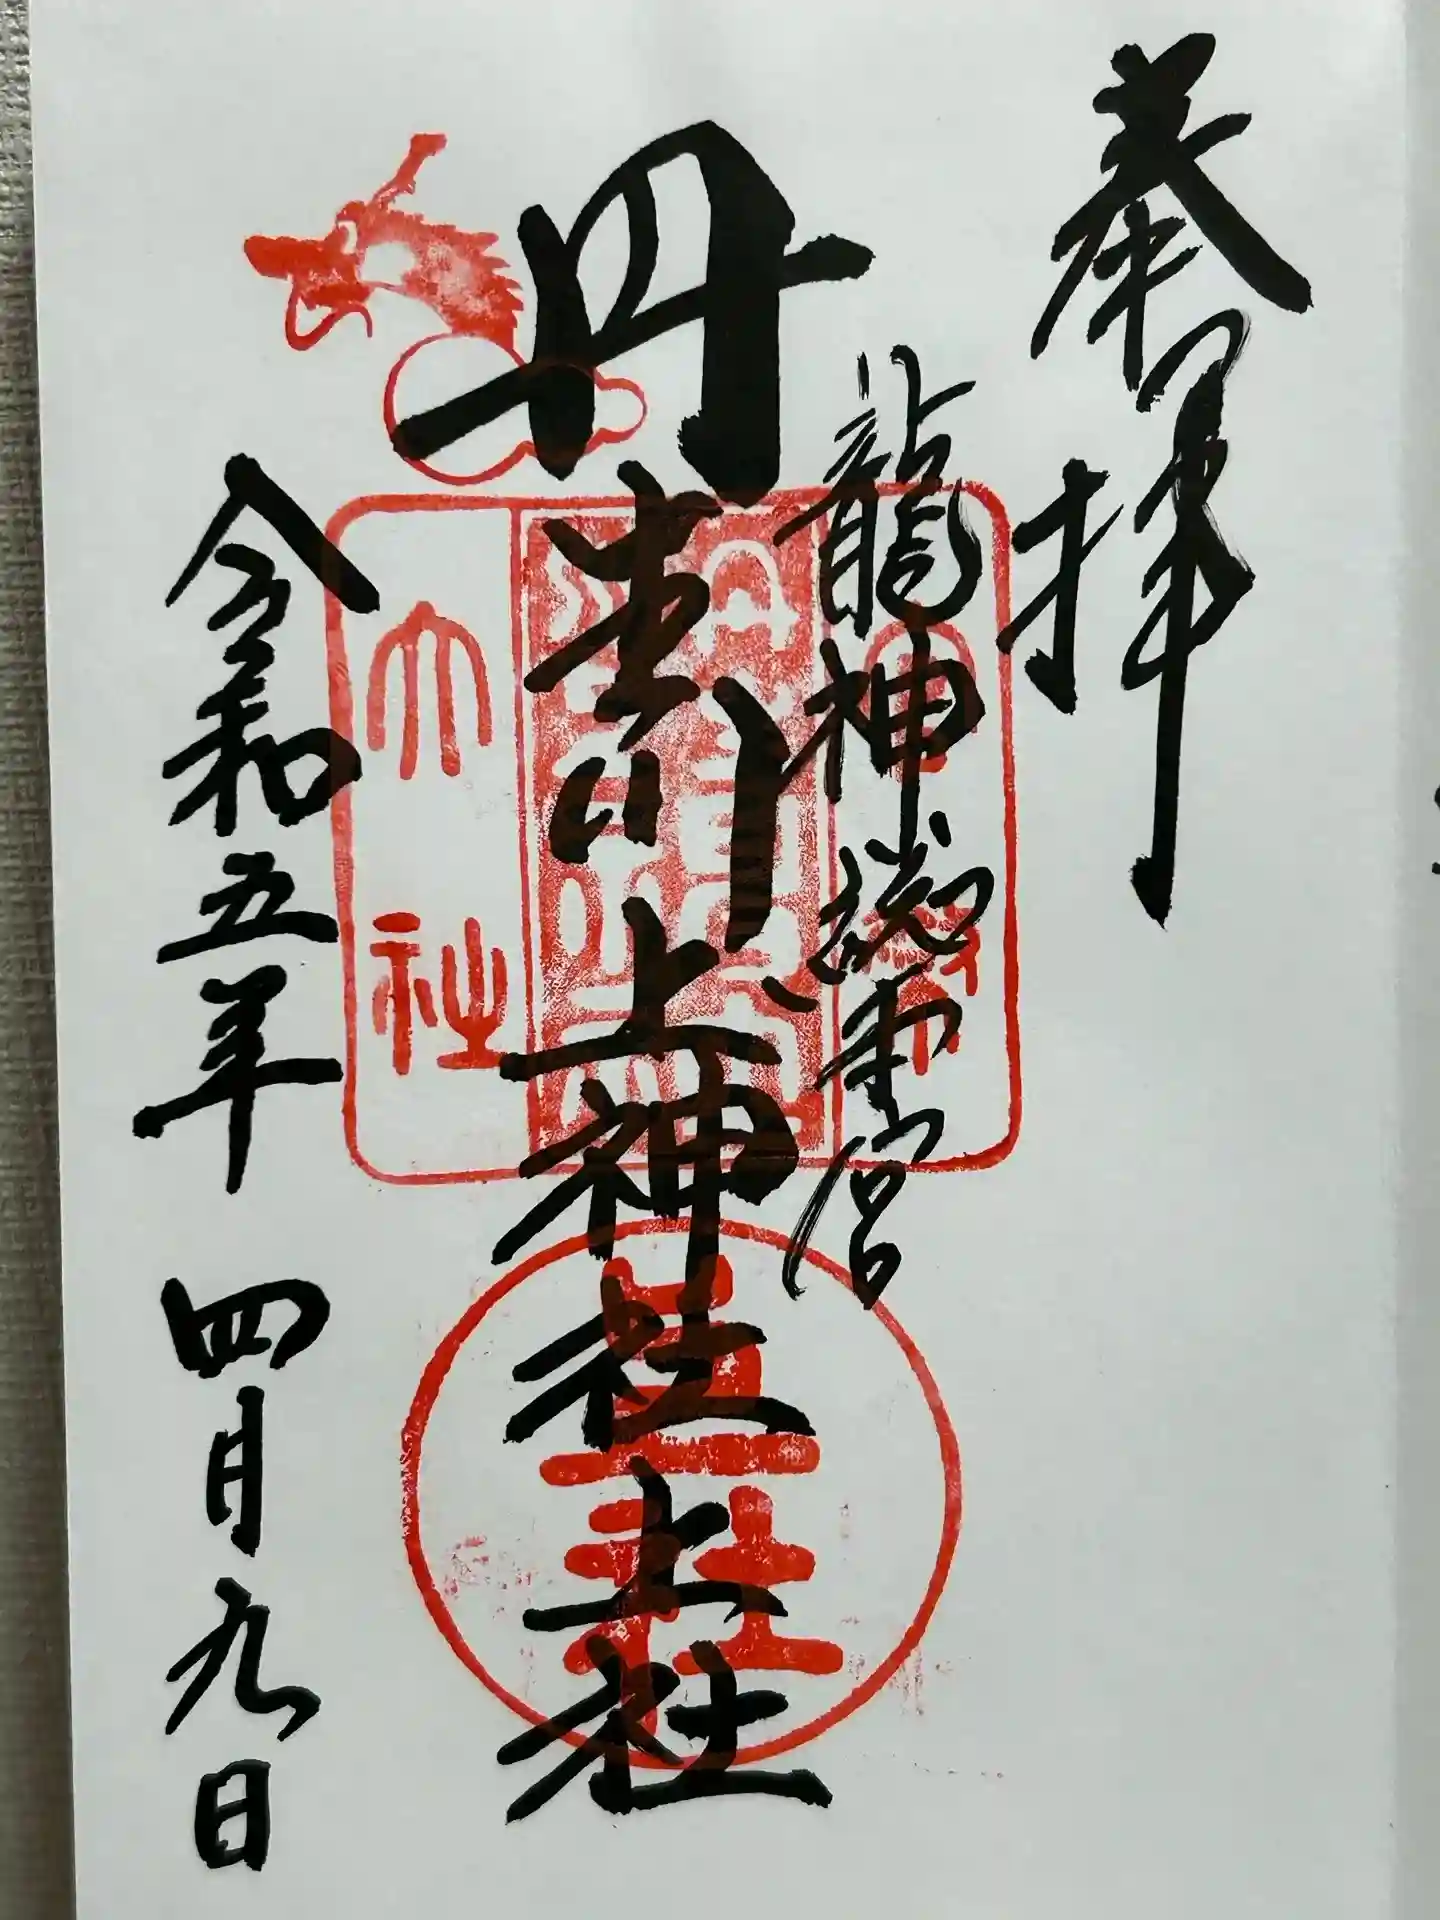 奉拝
龍神総本宮
丹生川上神社上社
令和五年 四月九日
官幣
大社